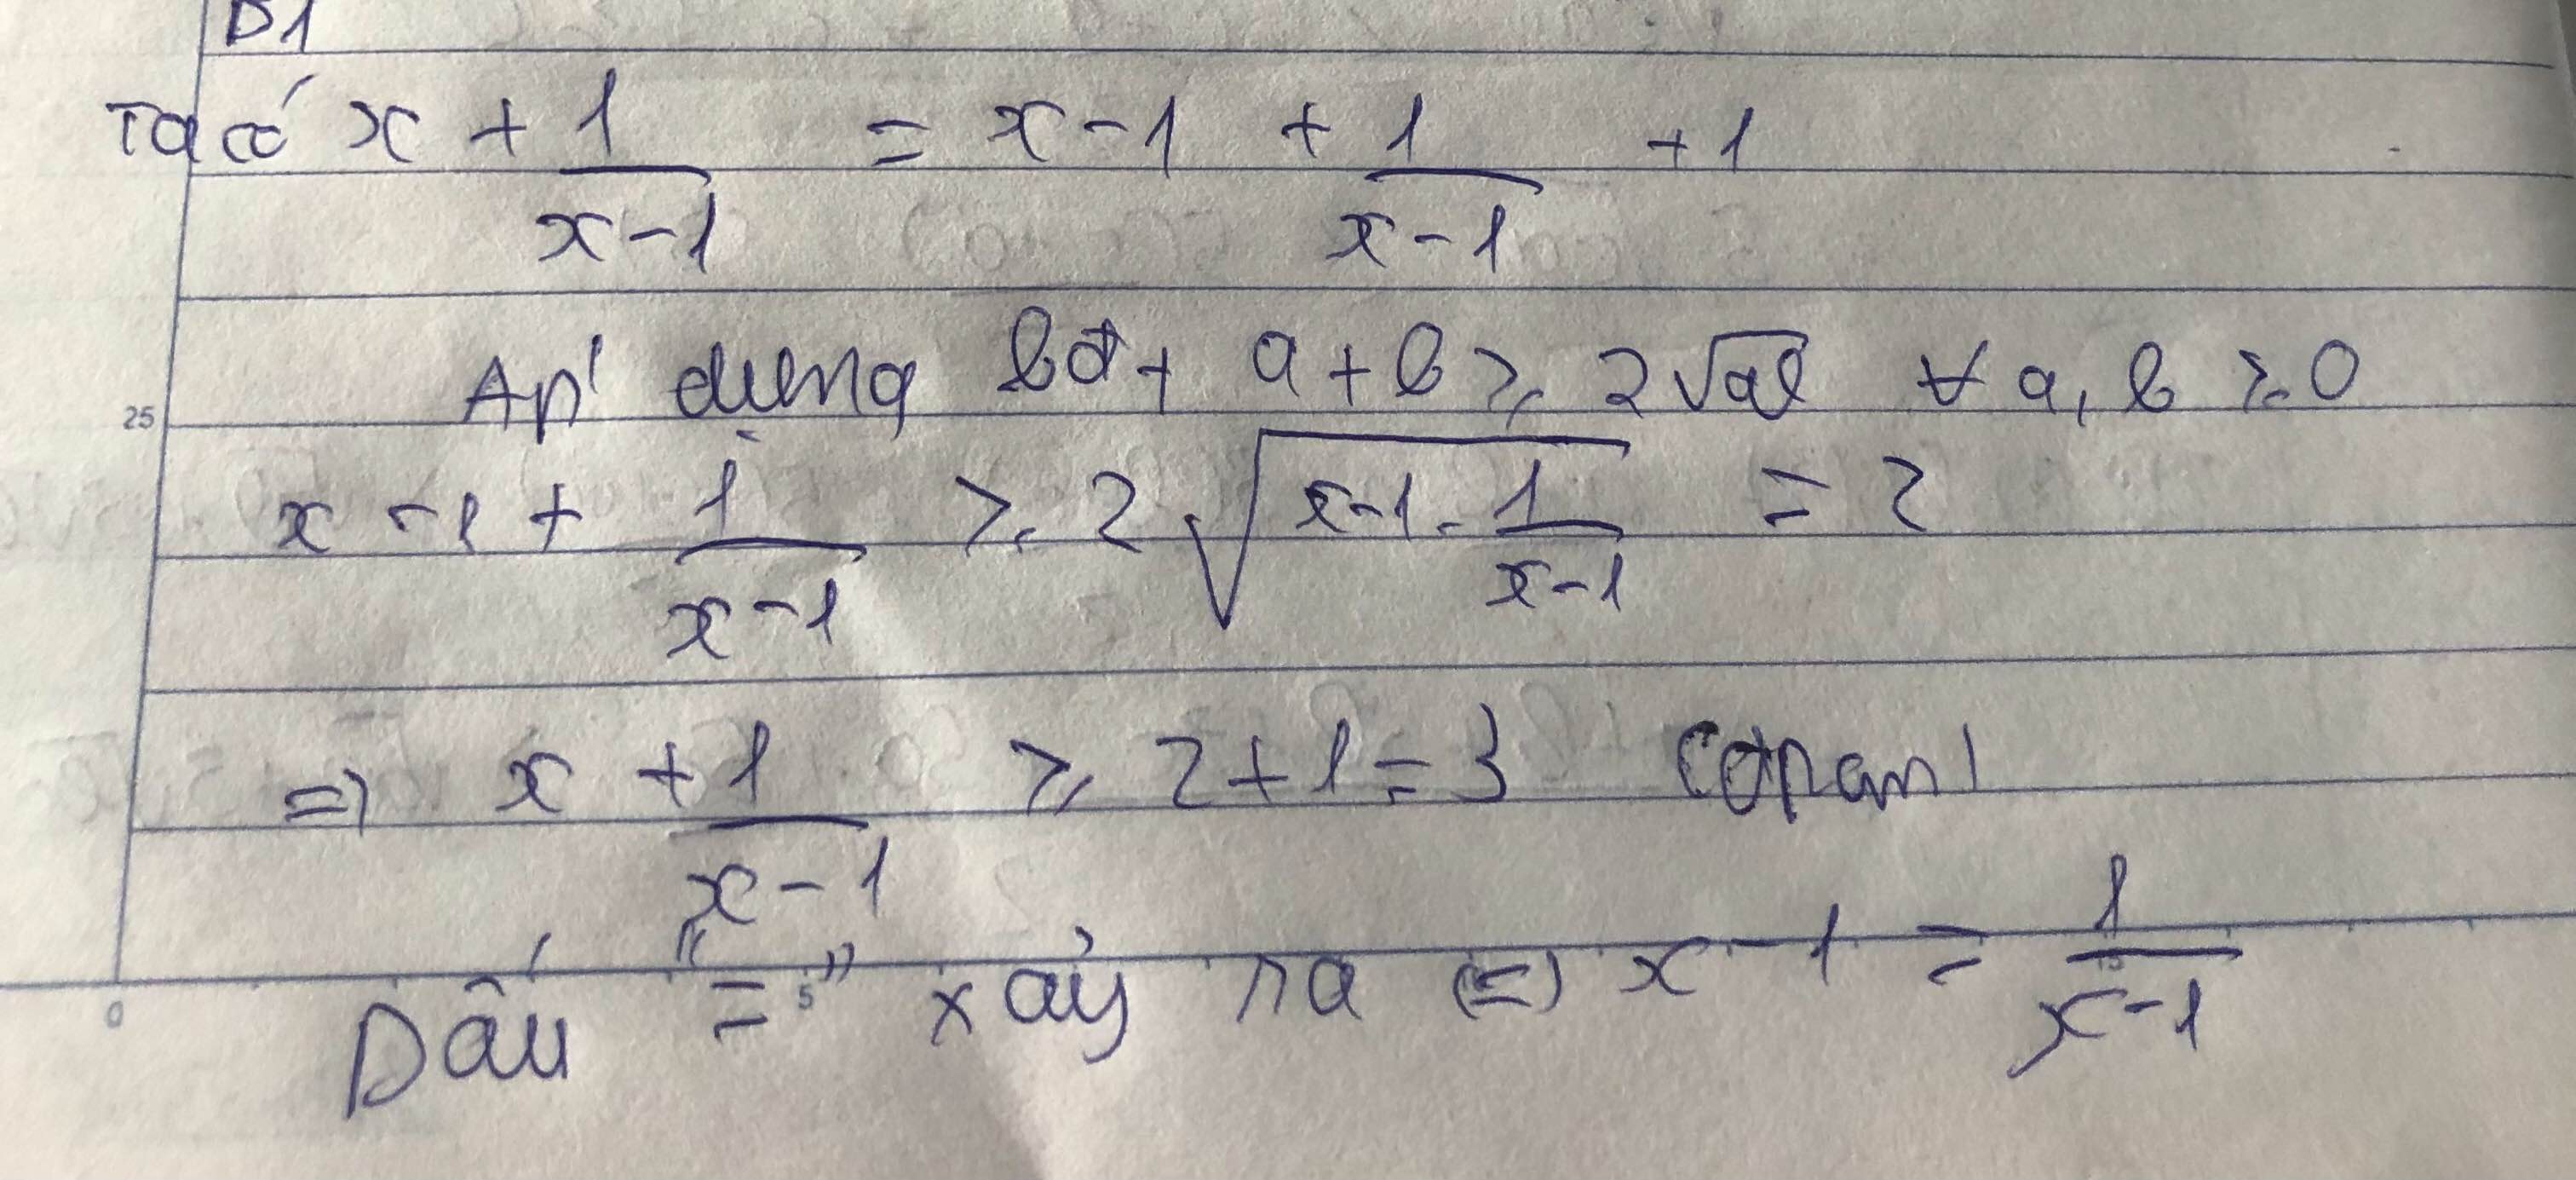 B1
Ta có x + 1/(x-1) = x-1 + 1/(x-1) + 1
Áp dụng bđt a+b ≥ 2√ab ∀ a, b ≥ 0
25
x - 1 + 1/(x-1) ≥ 2√(x-1 . 1/(x-1)) = 2
=> x + 1/(x-1) ≥ 2+1 = 3
Dấu "=" xảy ra (=) x-1 = 1/(x-1)
0 5 15